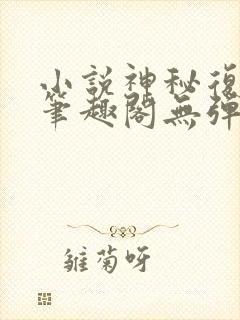 小說神秘復
筆趣閣無彈
雛菊呀